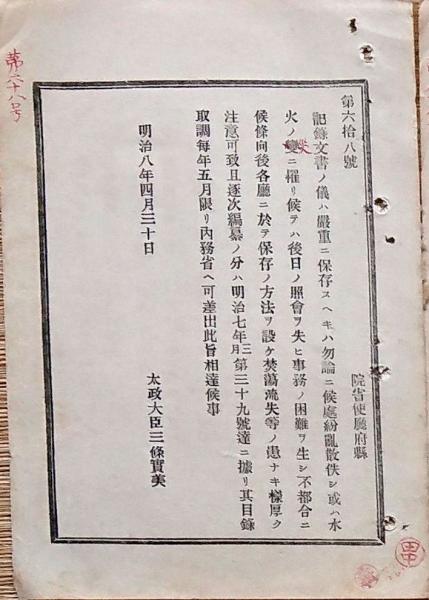 第六十八号
第六拾八號
院省使廳府縣
記錄文書ノ儀ハ嚴重ニ保存スヘキハ勿論ニ候處紛亂散佚シ或ハ水
火ノ變ニ罹リ候テハ後日ノ照會ヲ失ヒ事務ノ困難ヲ生シ不都合ニ
候條向後各廳ニ於テ保存ノ方法ヲ設ケ焚蕩流失等ノ患ナキ樣厚ク
注意可致且逐次編纂ノ分ハ明治七年三月第三十九號達ニ據リ其目錄
取調每年五月限リ內務省ヘ可差出此旨相達候事
明治八年四月三十日
太政大臣三條實美
田中